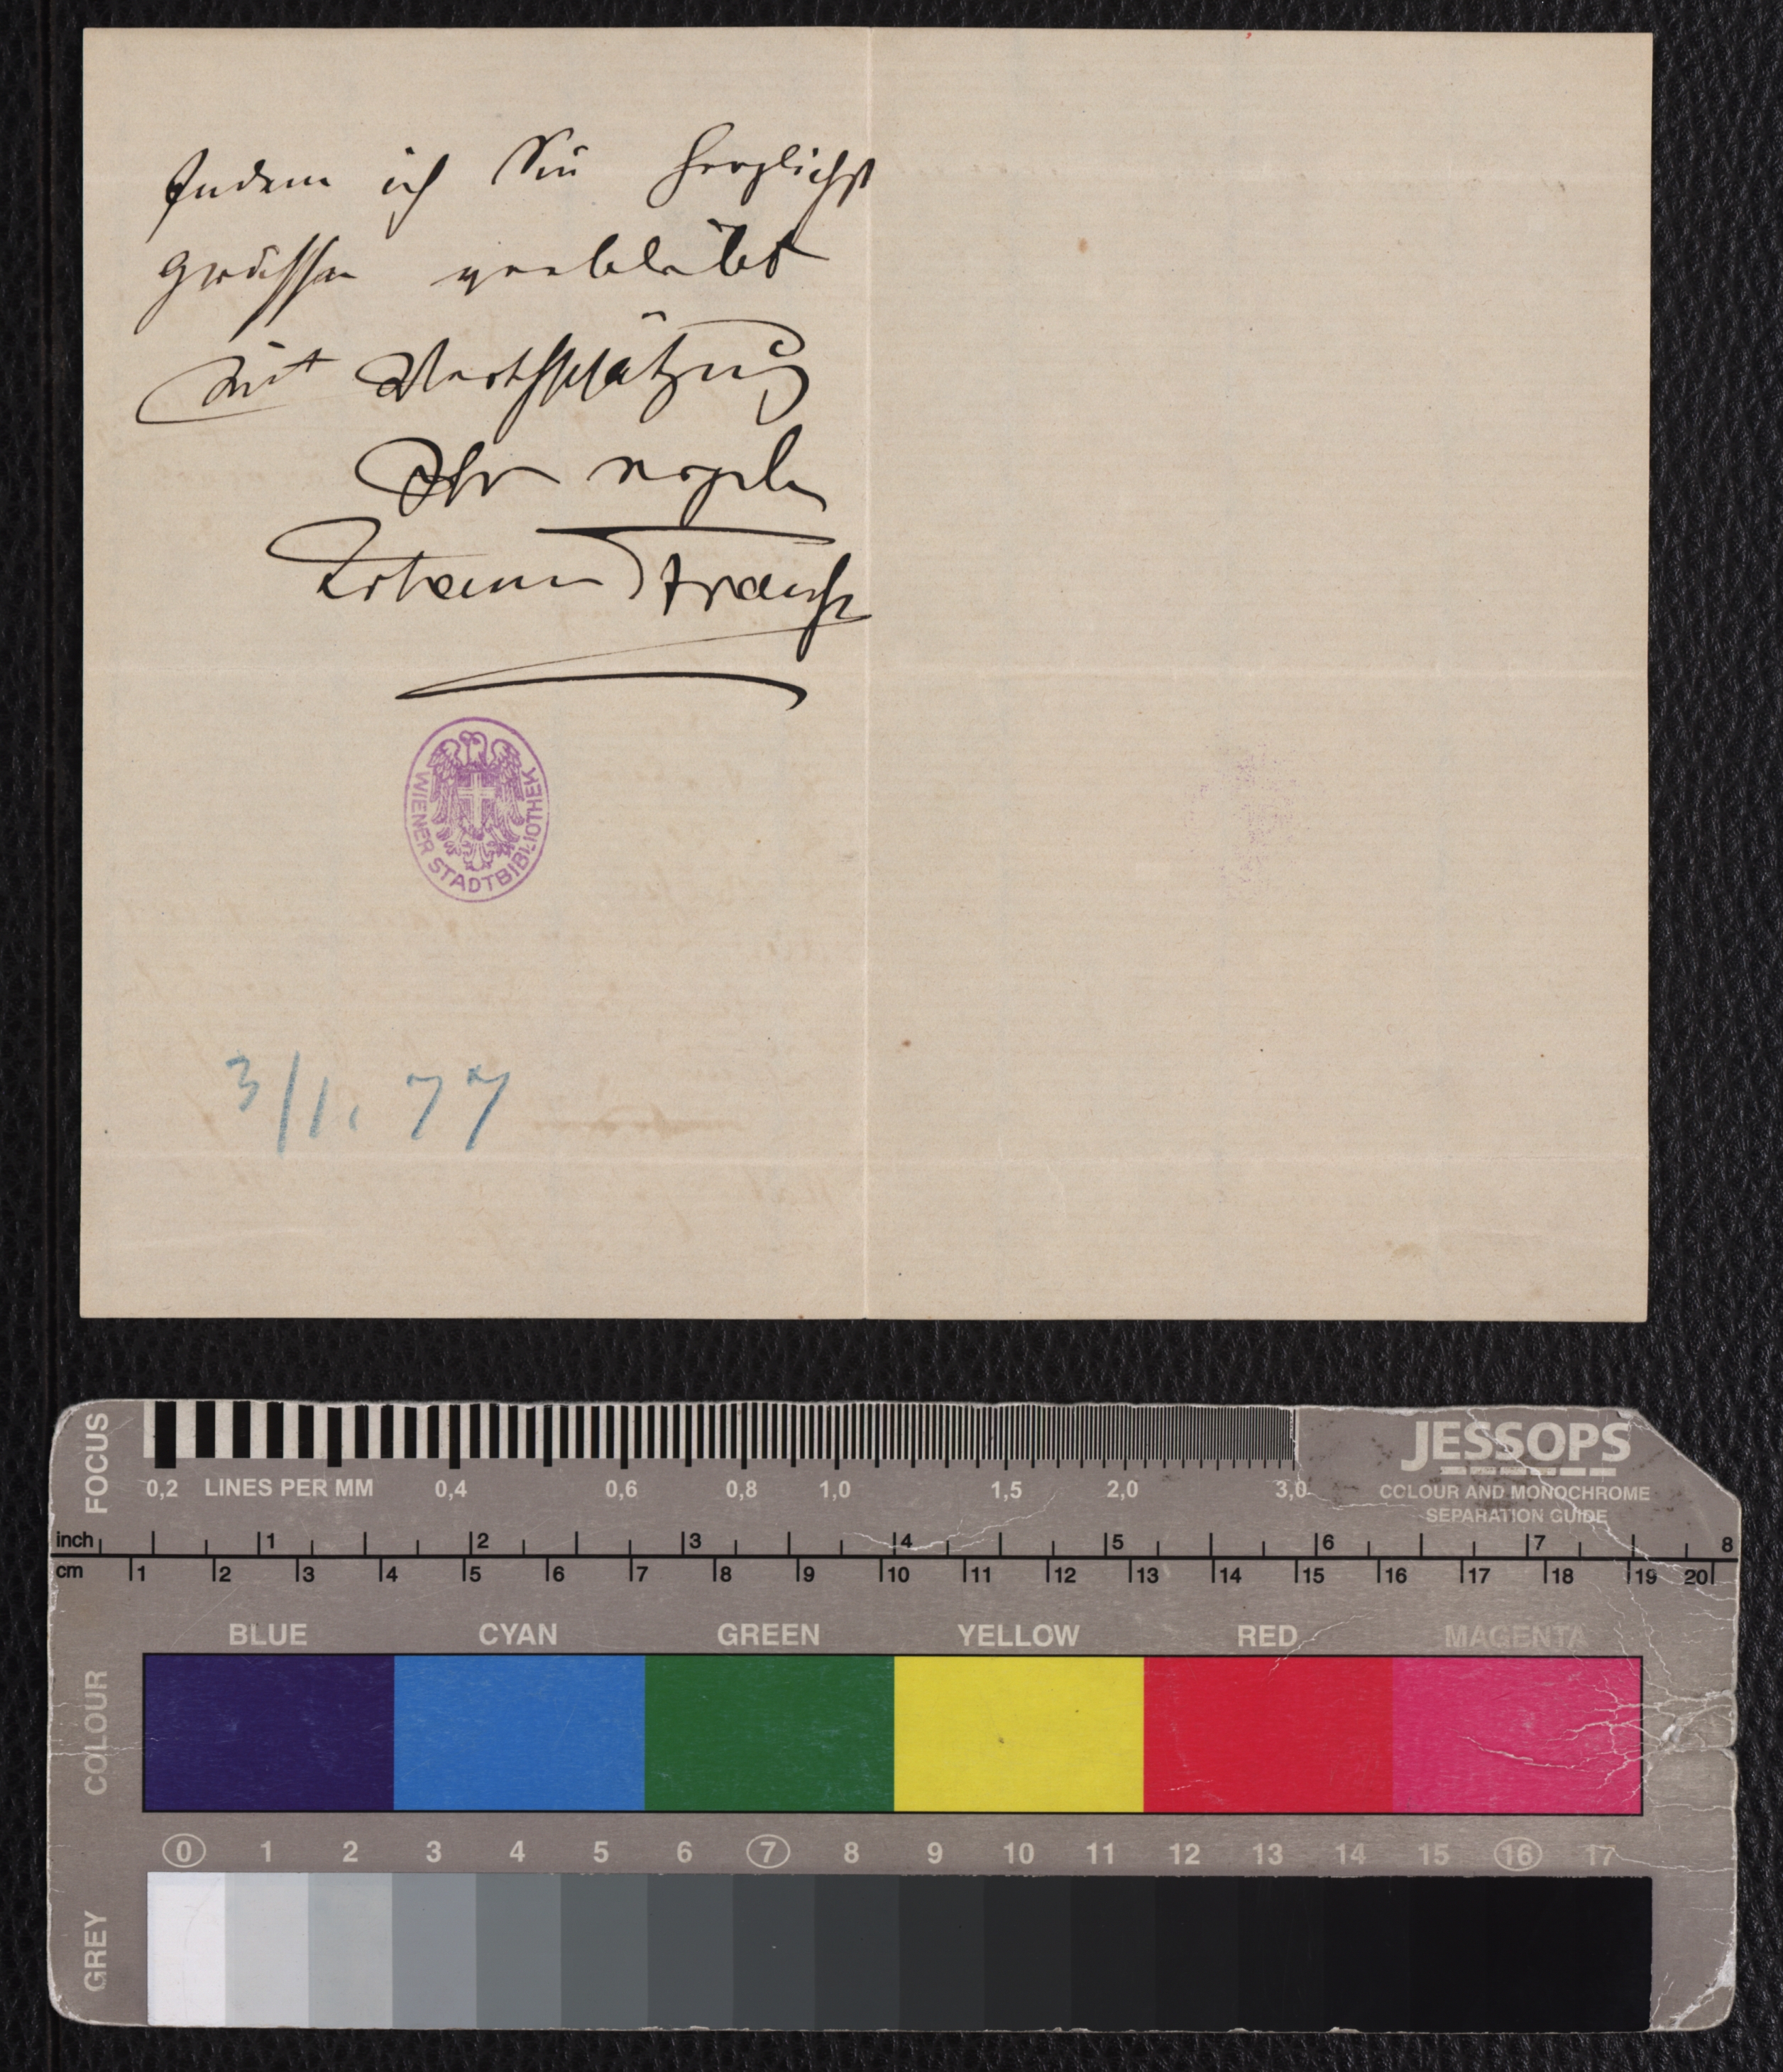 Indem ich Sie herzlichst
grüssen verbleibt
mit Werthschätzung
Ihr ergeb
Johann Strauss
WIENER STADTBIBLIOTHEK
3/1. 77
FOCUS
0,2 LINES PER MM 0,4 0,6 0,8 1,0 1,5 2,0 3,0
JESSOPS
COLOUR AND MONOCHROME
SEPARATION GUIDE
inch 1 2 3 4 5 6 7 8
cm 1 2 3 4 5 6 7 8 9 10 11 12 13 14 15 16 17 18 19 20
COLOUR
BLUE CYAN GREEN YELLOW RED MAGENTA
0 1 2 3 4 5 6 7 8 9 10 11 12 13 14 15 16 17
GREY